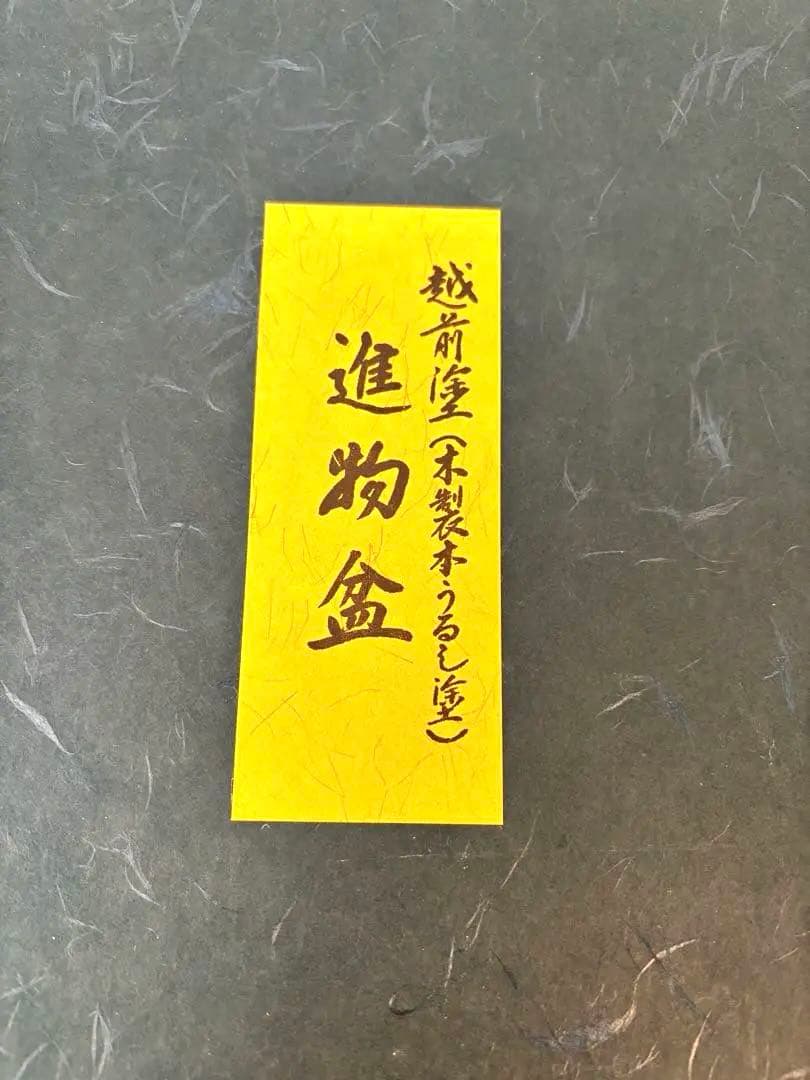 越前塗（木製本うるし塗）
進物盆